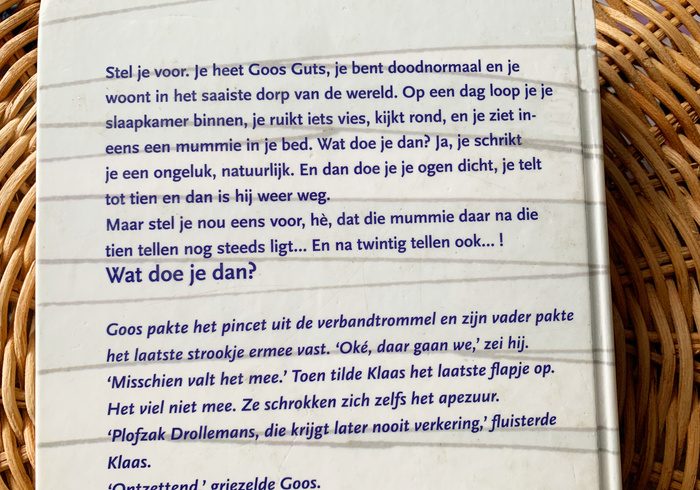 Stel je voor. Je heet Goos Guts, je bent doodnormaal en je
woont in het saaiste dorp van de wereld. Op een dag loop je je
slaapkamer binnen, je ruikt iets vies, kijkt rond, en je ziet in-
eens een mummie in je bed. Wat doe je dan? Ja, je schrikt
je een ongeluk, natuurlijk. En dan doe je je ogen dicht, je telt
tot tien en dan is hij weer weg.
Maar stel je nou eens voor, hè, dat die mummie daar na die
tien tellen nog steeds ligt... En na twintig tellen ook... !
Wat doe je dan?
Goos pakte het pincet uit de verbandtrommel en zijn vader pakte
het laatste strookje ermee vast. ‘Oké, daar gaan we,’ zei hij.
‘Misschien valt het mee.’ Toen tilde Klaas het laatste flapje op.
Het viel niet mee. Ze schrokken zich zelfs het apezuur.
‘Plofzak Drollemans, die krijgt later nooit verkering,’ fluisterde
Klaas.
‘Ontzettend,’ griezelde Goos.